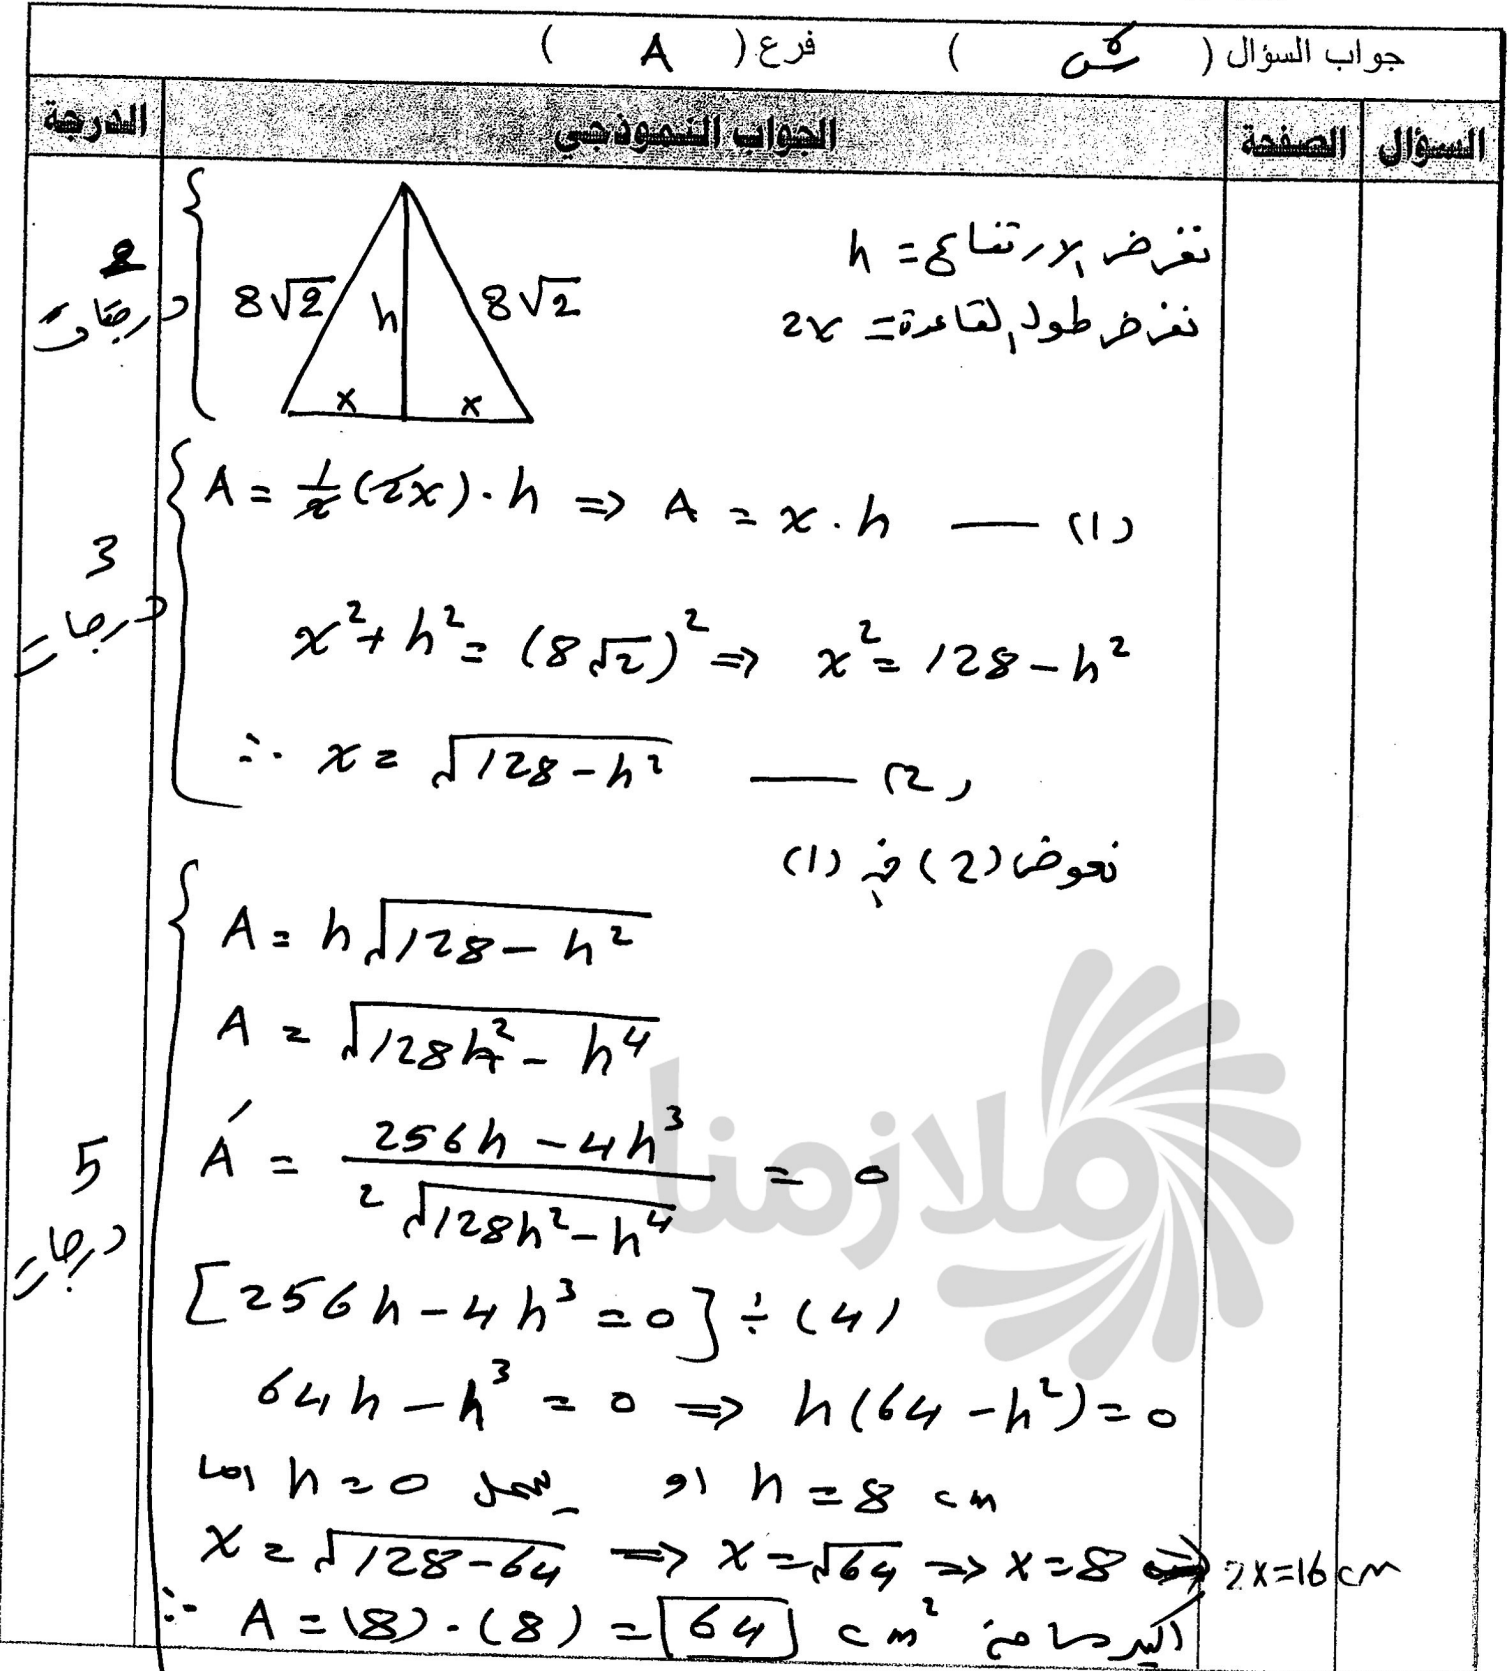 جواب السؤال ( ) فرع ( A )
السؤال الصفحة الجواب النموذجي الدرجة
نفرض الارتفاع = h
نفرض طول القاعدة = 2x
8√2 h 8√2
x x
2 درجات
A = 1/2 (2x) . h ⇒ A = x . h —— (1)
x² + h² = (8√2)² ⇒ x² = 128 - h²
∴ x = √(128 - h²) —— (2)
3 درجات
نعوض (2) في (1)
A = h √(128 - h²)
A = √(128h² - h⁴)
A′ = (256h - 4h³) / (2√(128h² - h⁴)) = 0
5 درجات
[256h - 4h³ = 0] ÷ (4)
64h - h³ = 0 ⇒ h(64 - h²) = 0
اما h = 0 يهمل او h = 8 cm
x = √(128 - 64) ⇒ x = √64 ⇒ x = 8 ⇒ 2x = 16 cm
∴ A = (8) . (8) = 64 cm² اكبر مساحة
ملازمنا